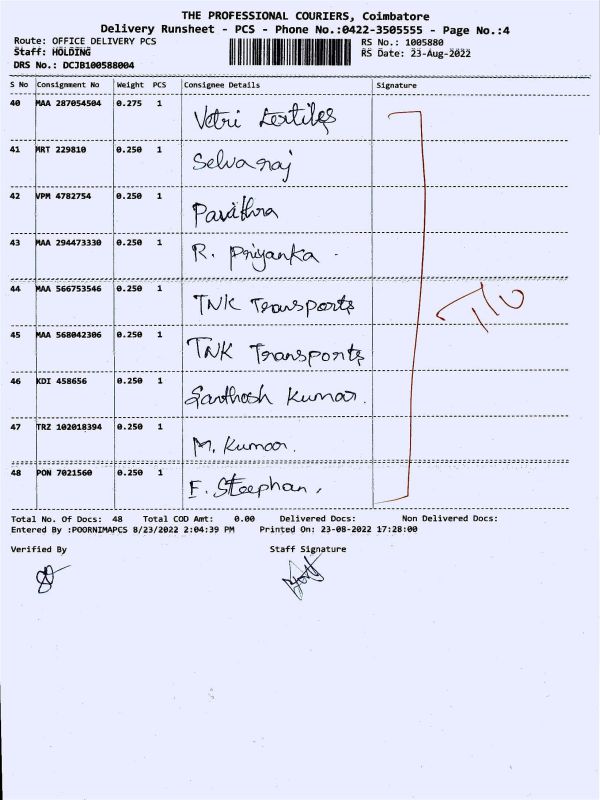 THE PROFESSIONAL COURIERS, Coimbatore
Delivery Runsheet - PCS - Phone No.:0422-3505555 - Page No.:4
Route: OFFICE DELIVERY PCS RS No.: 1005880
Staff: HOLDING RS Date: 23-Aug-2022
DRS No.: DCJB100588004
S No Consignment No Weight PCS Consignee Details Signature
40 MAA 287054504 0.275 1 Vetri Textiles
41 MRT 229810 0.250 1 Selvaraj
42 VPM 4782754 0.250 1 Pavithra
43 MAA 294473330 0.250 1 R. Priyanka.
44 MAA 566753546 0.250 1 TNK Transports
45 MAA 568042306 0.250 1 TNK Transports
46 KDI 458656 0.250 1 Santhosh Kumar.
47 TRZ 102018394 0.250 1 M. Kumar.
48 PON 7021560 0.250 1 F. Steephan.
Total No. Of Docs: 48 Total COD Amt: 0.00 Delivered Docs: Non Delivered Docs:
Entered By :POORNIMAPCS 8/23/2022 2:04:39 PM Printed On: 23-08-2022 17:28:00
Verified By Staff Signature